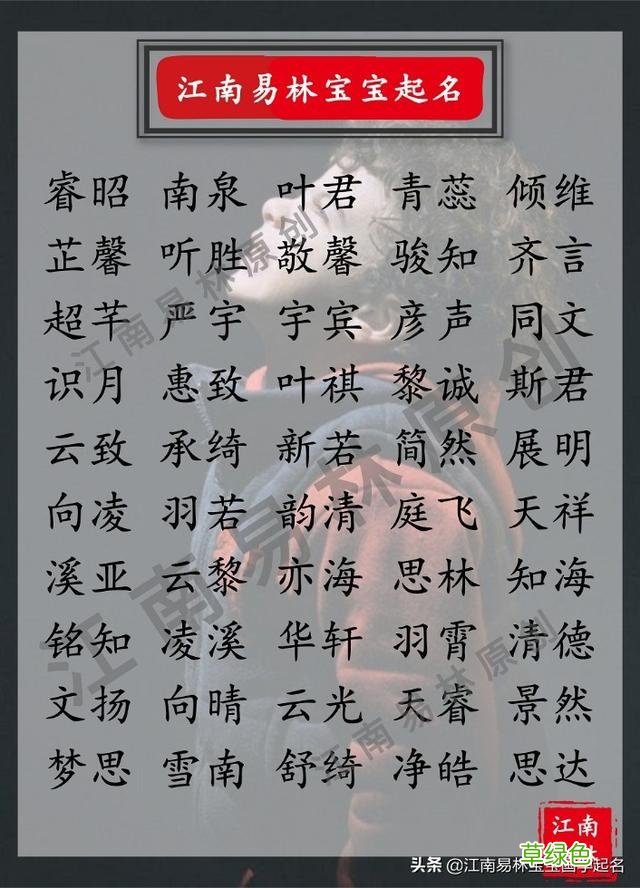 江南易林宝宝起名
睿昭 南泉 叶君 青蕊 倾维
芷馨 听胜 敬馨 骏知 齐言
超芊 严宇 宇宾 彦声 同文
识月 惠致 叶祺 黎诚 斯君
云致 承绮 新若 简然 展明
向凌 羽若 韵清 庭飞 天祥
溪亚 云黎 亦海 思林 知海
铭知 凌溪 华轩 羽霄 清德
文扬 向晴 云光 天睿 景然
梦思 雪南 舒绮 净皓 思达
江南易林原创
江南易林原创
江南易林原创
江南
草绿色
头条 @江南易林宝宝国学起名